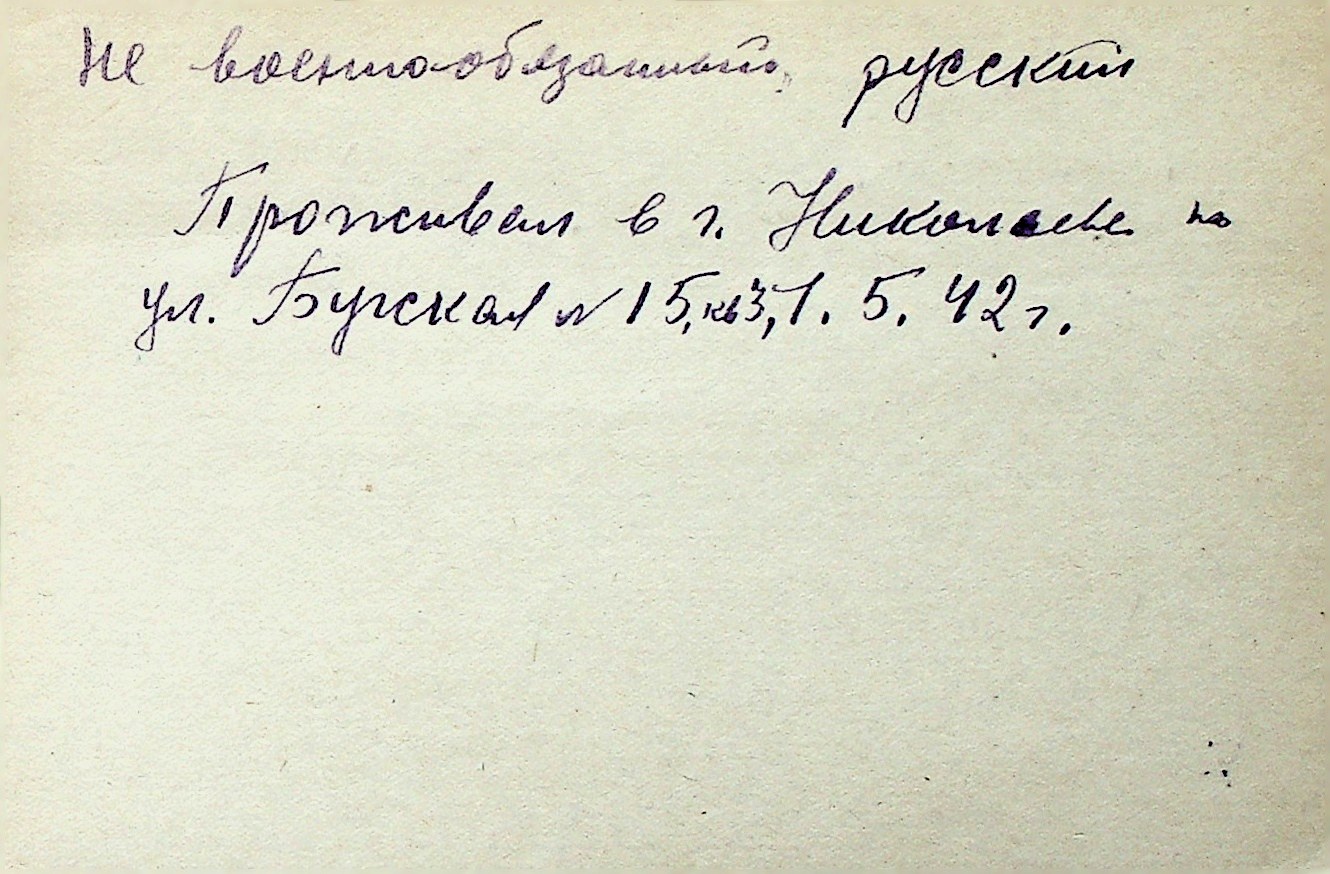 Не военнообязанный, русский
Проживал в г. Николаеве на
ул. Бугская № 15, кв 3, 1. 5. 42 г.